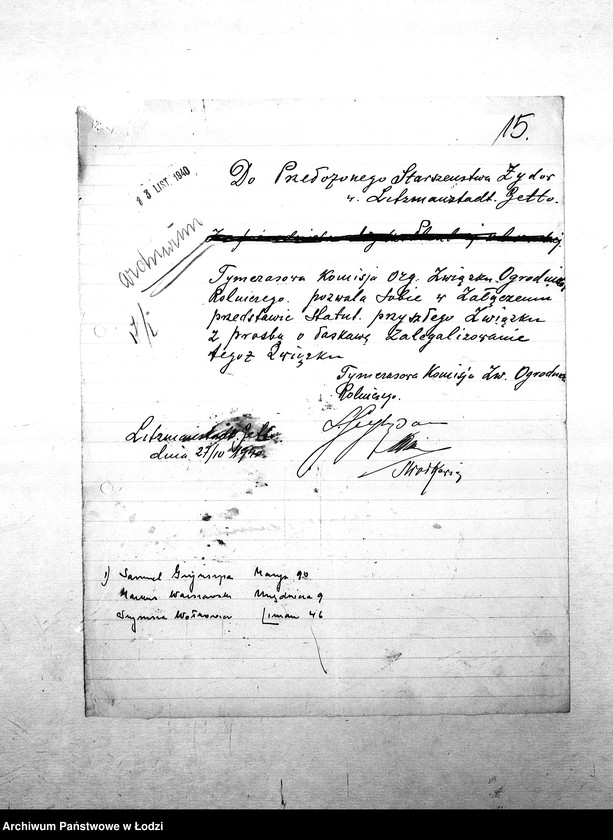 15.
13 LIST. 1940
Do Przełożonego Starszeństwa Żydow
w. Litzmanstadt. Getto.
archiwum
Tymczasowa Komisja Org. Związku. Ogrodniczo
Rolniczego. pozwala sobie w Załączeniu
przedstawic Statut. przyszłego Związku
z prosbą o łaskawą Zalegalizowanie
tegoż Związku
Tymczasowa Komisja Zw. Ogrodnicz
Rolniczego.
Litzmanstadt Getto
dnia 27/IV 1940
1) Samuel Marys 90
Warszawski Młynarska 9
Szymsia Wołkowicz Liman 46
Archiwum Państwowe w Łodzi